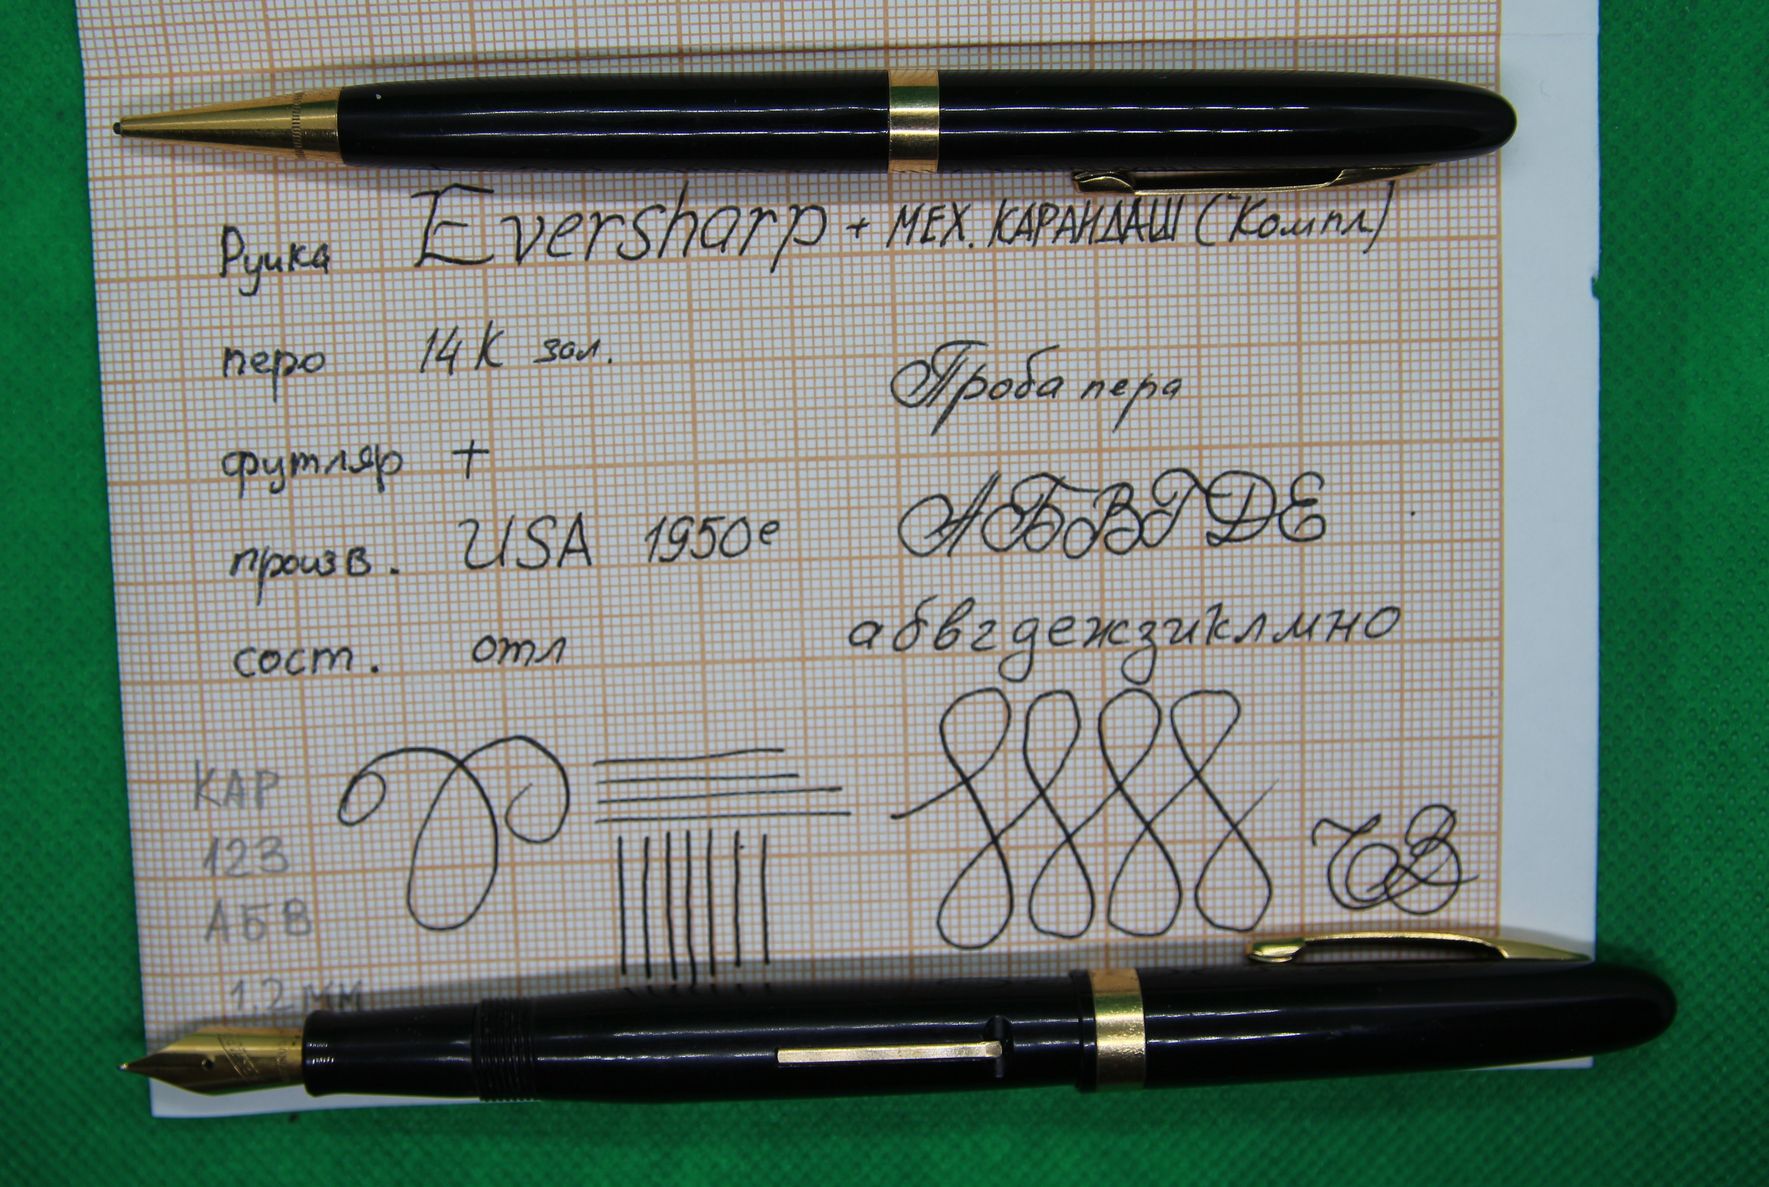 Ручка Eversharp + МЕХ. КАРАНДАШ (Компл)
перо 14К зол.
Проба пера
футляр +
АБВГДЕ
произв. USA 1950е
абвгдежзиклмно
сост. отл
КАР
123
АБВ
1.2мм